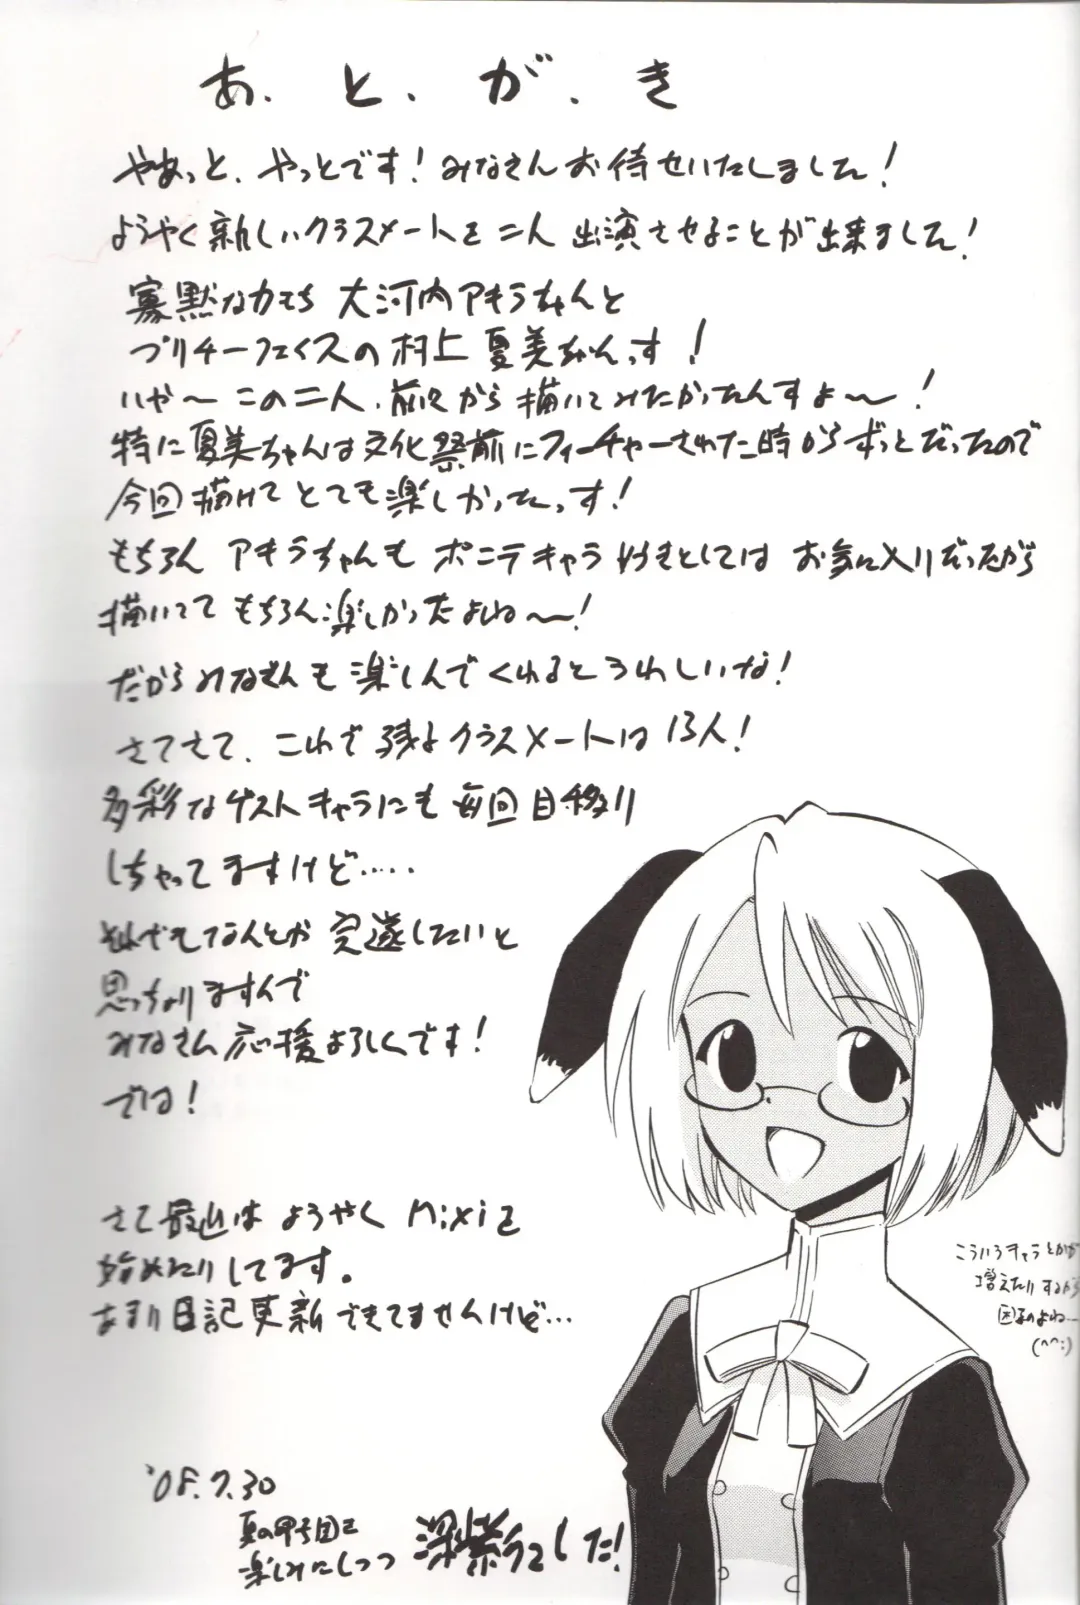 あ．と．が．き
やあっと、やっとです！みなさんお待せいたしました！
ようやく新しいクラスメートを二人 出演させることが出来ました！
寡黙な力もち 大河内アキラちゃんと
プリチーフェイスの村上 夏美ちゃんっす！
いや〜 この二人、前々から描いてみたかったんすよ〜！
特に夏美ちゃんは文化祭前にフィーチャーされた時からずっとだったので
今回描けてとても楽しかったっす！
もちろん アキラちゃんも ポニテキャラ好きとしては お気に入りだったから
描いてて もちろん楽しかったよね〜！
だからみなさんも楽しんでくれるとうれしいな！
さてさて、これで残るクラスメートは13人！
多彩なゲストキャラにも毎回目移り
しちゃってますけど‥‥‥
それでもなんとか 完遂したいと
思っちょりますんで
みなさん応援よろしくです！
では！
さて最近は ようやく mixiを
始めたりしてます。
あまり日記更新できてませんけど…
こういうキャラとかが
増えたりするから
困るのよね…
(^^;)
'08.7.30
夏の甲子園を
楽しみにしつつ 深紫でした！